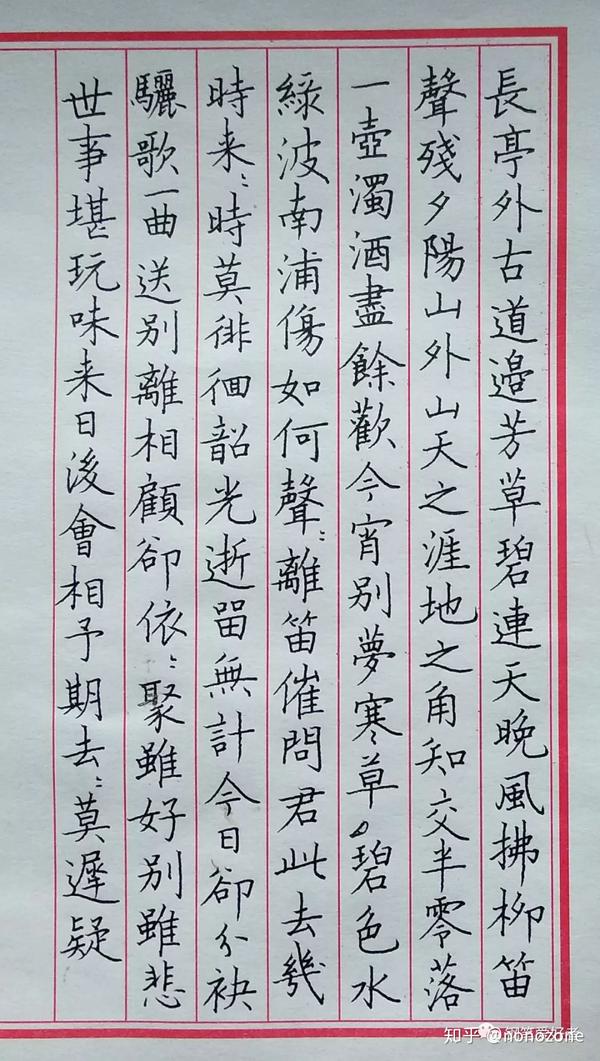 長亭外古道邊芳草碧連天晚風拂柳笛
聲殘夕陽山外山天之涯地之角知交半零落
一壺濁酒盡餘歡今宵别夢寒草碧色水
綠波南浦傷如何聲〻離笛催問君此去幾
時来〻時莫徘徊韶光逝留無計今日卻分袂
驪歌一曲送别離相顧卻依〻聚雖好别雖悲
世事堪玩味来日後會相予期去〻莫遲疑
知乎 @nonozone